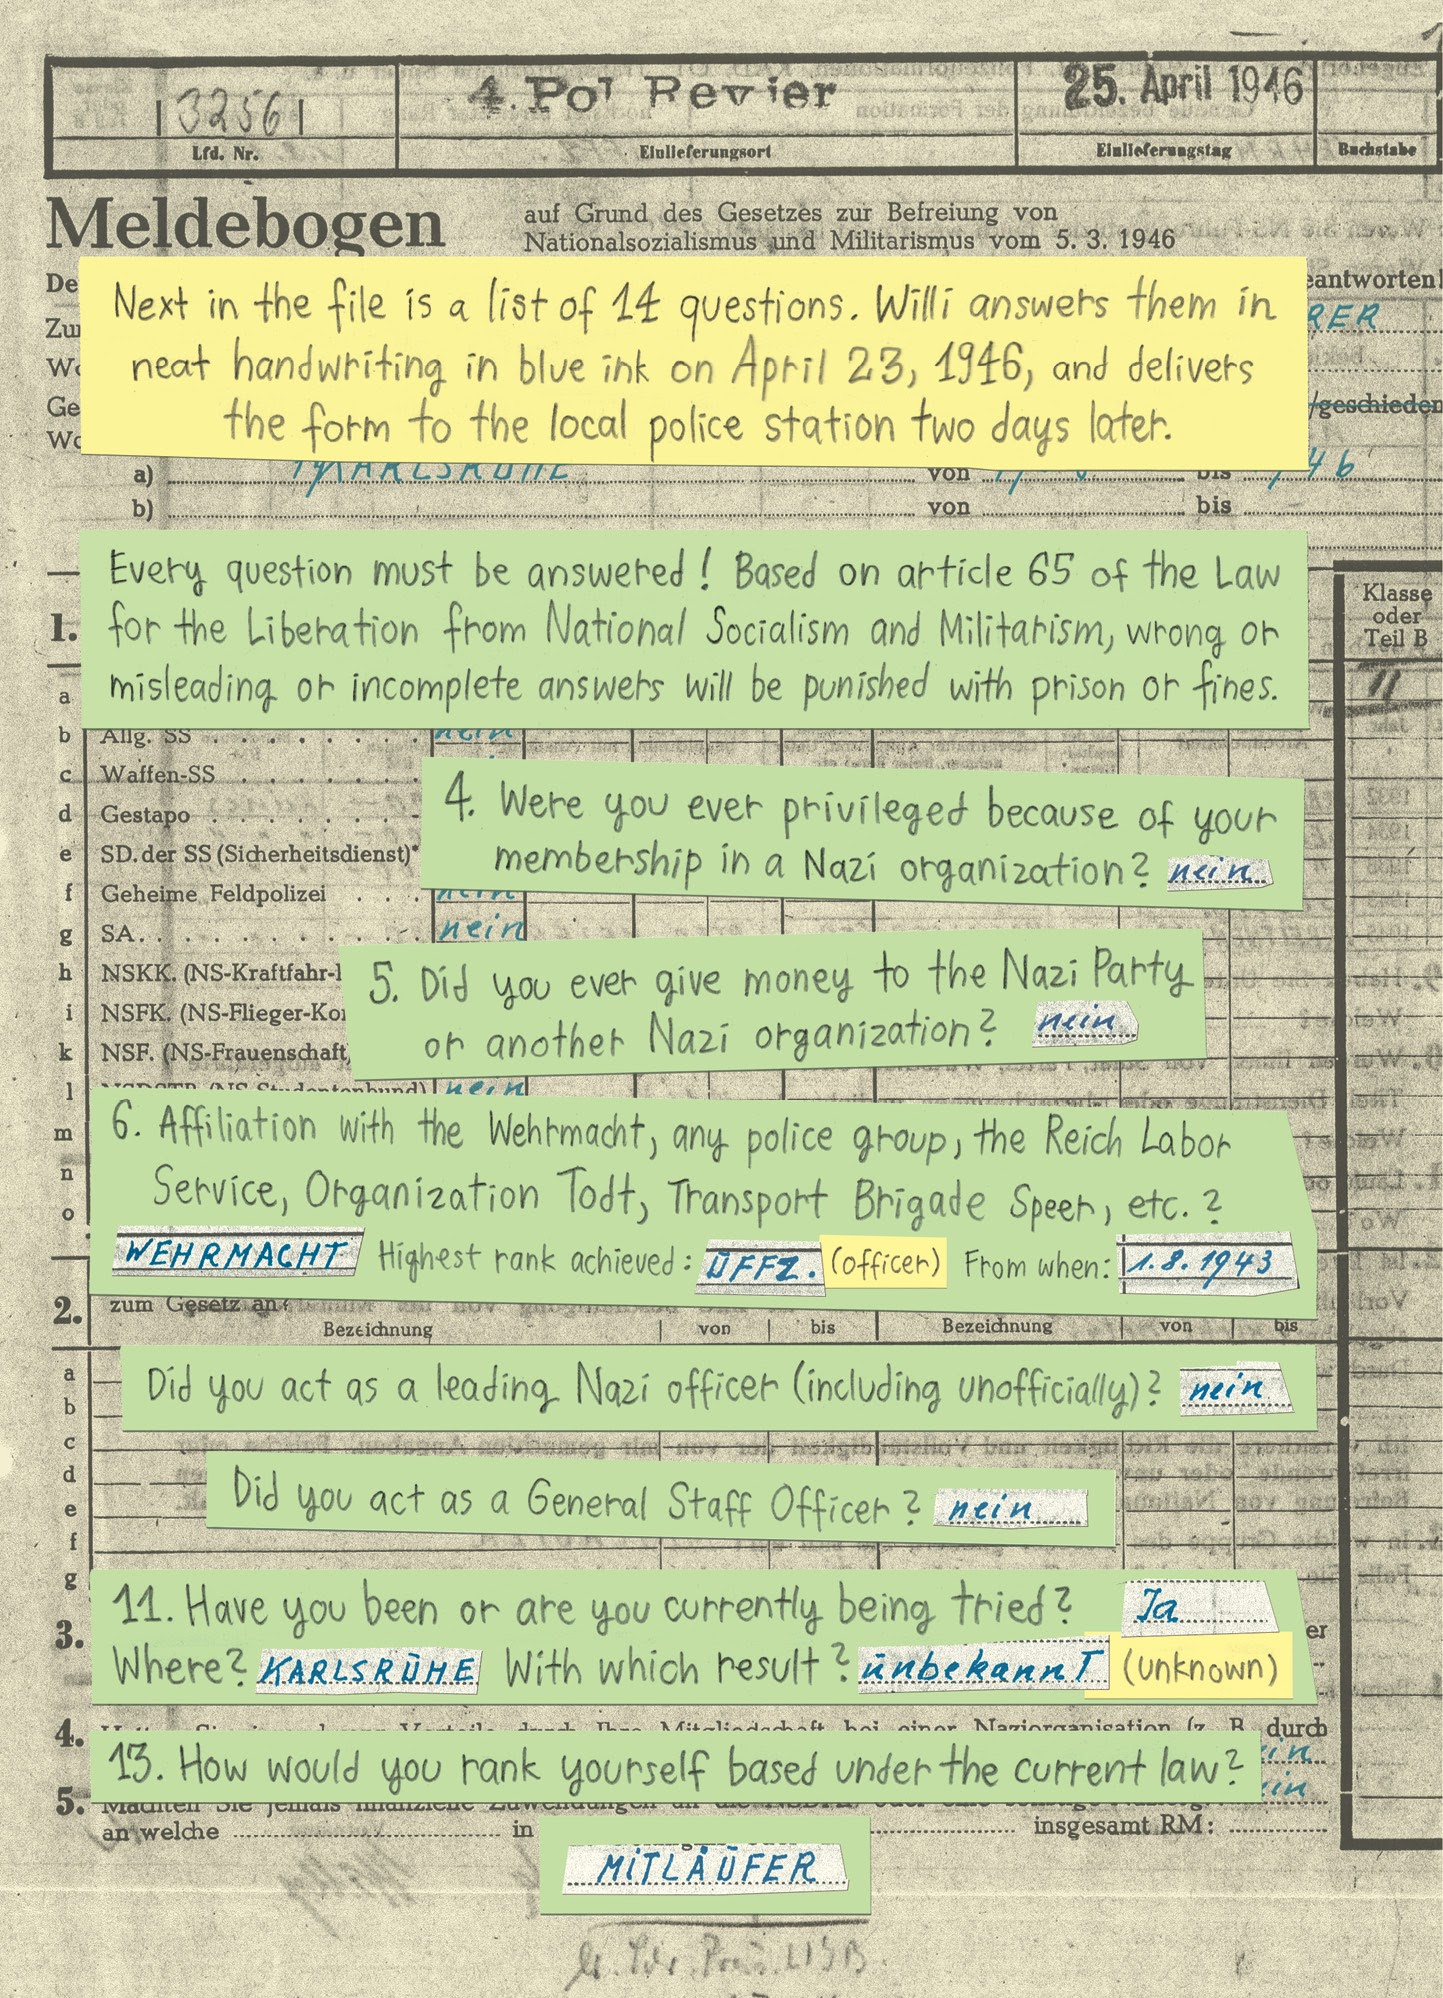 3256
4. Pol Revier
25. April 1946
Lfd. Nr.
Einlieferungsort
Einlieferungstag
Buchstabe
Meldebogen
auf Grund des Gesetzes zur Befreiung von
Nationalsozialismus und Militarismus vom 5. 3. 1946
Next in the file is a list of 14 questions. Willi answers them in
neat handwriting in blue ink on April 23, 1946, and delivers
the form to the local police station two days later.
/geschieden
a) KARLSRUHE von bis
b) von bis
Every question must be answered! Based on article 65 of the Law
for the Liberation from National Socialism and Militarism, wrong or
misleading or incomplete answers will be punished with prison or fines.
1.
Klasse
oder
Teil B
a
b Allg. SS nein
c Waffen-SS
d Gestapo
e SD. der SS (Sicherheitsdienst)*
4. Were you ever privileged because of your
membership in a Nazi organization? nein
f Geheime Feldpolizei nein
g SA. nein
h NSKK. (NS-Kraftfahr-
i NSFK. (NS-Flieger-Ko
k NSF. (NS-Frauenschaft)
5. Did you ever give money to the Nazi Party
or another Nazi organization? nein
l NSDSTB (NS-Studentenbund) nein
m
n
o
6. Affiliation with the Wehrmacht, any police group, the Reich Labor
Service, Organization Todt, Transport Brigade Speer, etc.?
WEHRMACHT Highest rank achieved: ŪFFZ. (officer) From when: 1.8.1943
2. zum Gesetz an?
Bezeichnung von bis Bezeichnung von bis
a
b
Did you act as a leading Nazi officer (including unofficially)? nein
c
d
e
f
Did you act as a General Staff Officer? nein
g
11. Have you been or are you currently being tried? Ja
3.
Where? KARLSRŪHE With which result? ūnbekannT (unknown)
4. Mitgliedschaft bei einer Naziorganisation (z. B. durch
13. How would you rank yourself based under the current law?
5.
an welche in insgesamt RM:
MiTLÄŪFER